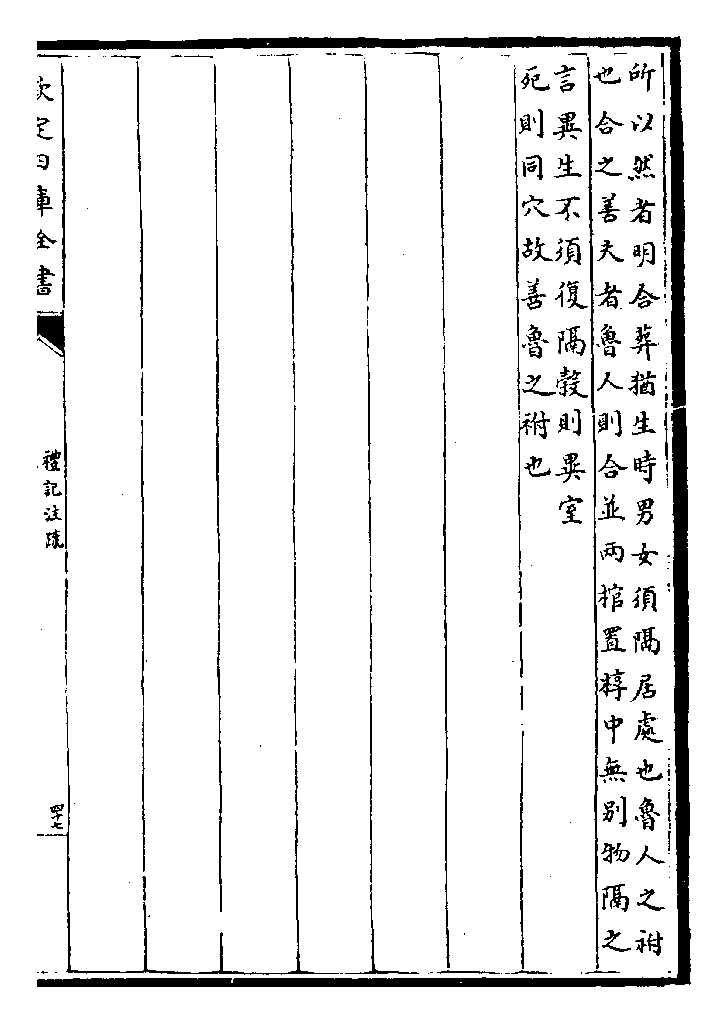 所以然者明合葬猶生時男女須隔居處也魯人之祔
也合之善夫者魯人則合並兩棺置椁中無別物隔之
言異生不須復隔穀則異室
死則同穴故善魯之祔也
欽定四庫全書
禮記注疏
四十七